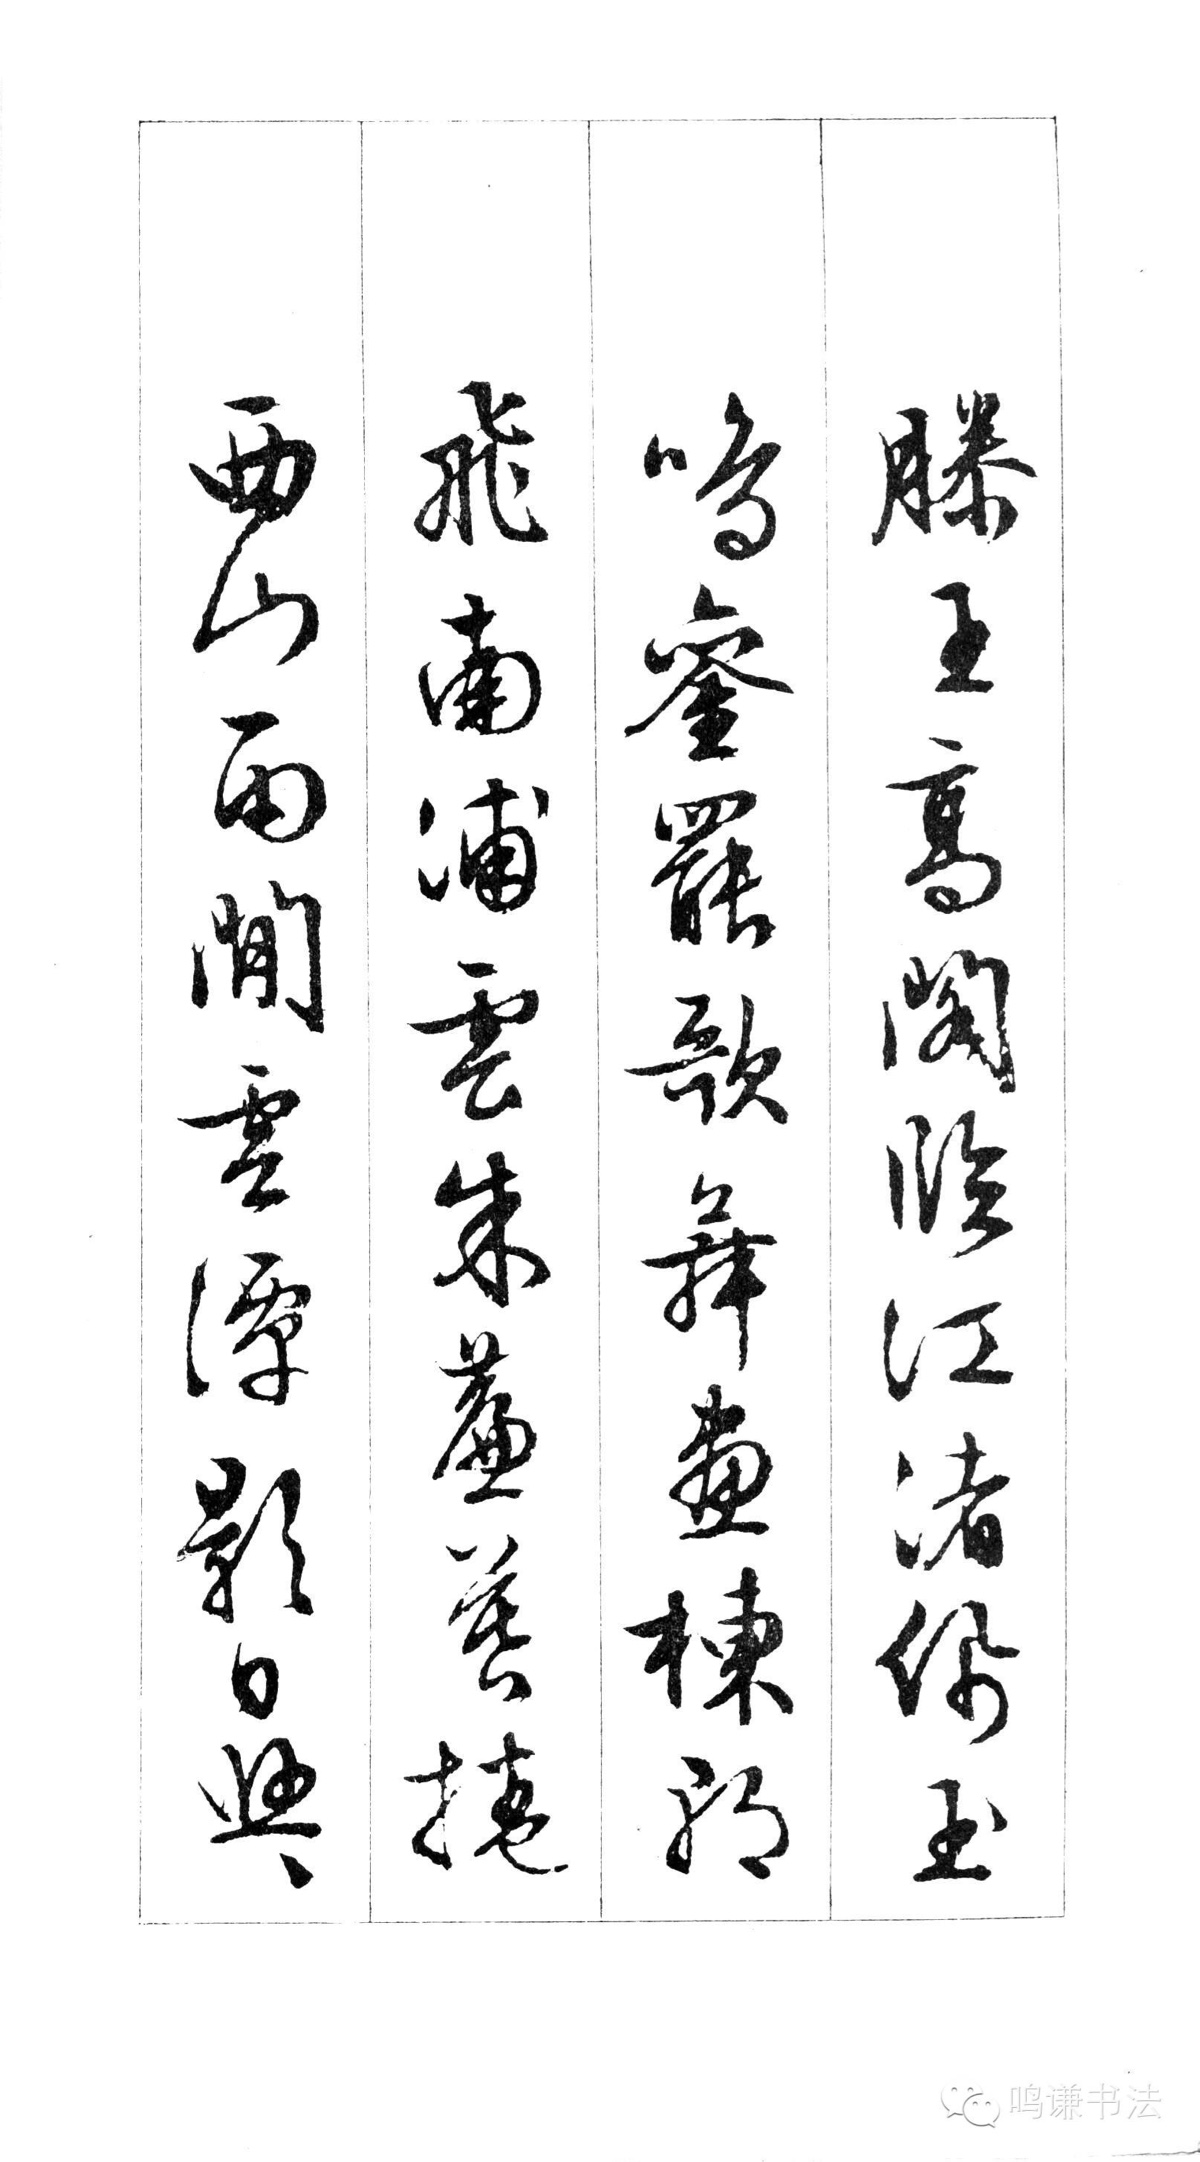 滕王高閣臨江渚佩玉
鳴鑾罷歌舞畫棟朝
飛南浦雲朱簾暮捲
西山雨閒雲潭影日與
鸣谦书法